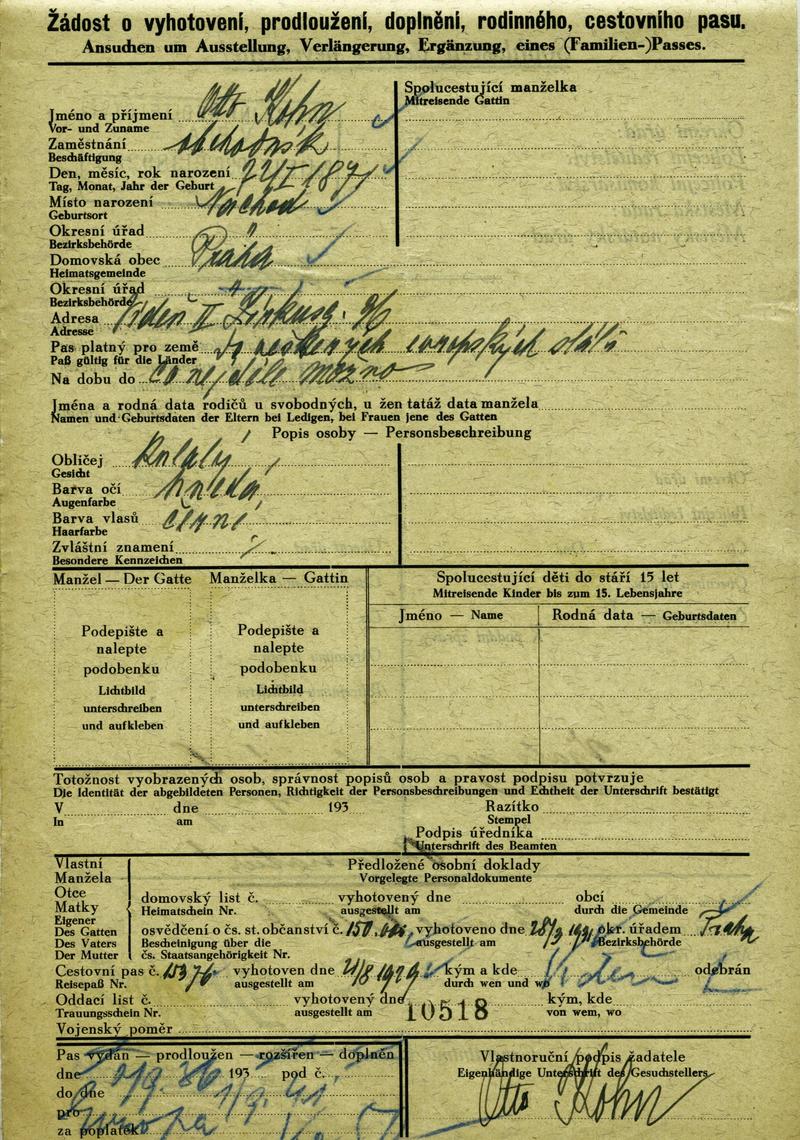 Žádost o vyhotovení, prodloužení, doplnění, rodinného, cestovního pasu.
Ansuchen um Ausstellung, Verlängerung, Ergänzung, eines (Familien-)Passes.
Jméno a příjmení Otto Kohn
Vor- und Zuname
Zaměstnání obchodník
Beschäftigung
Den, měsíc, rok narození 22/I 1871
Tag, Monat, Jahr der Geburt
Místo narození Náchod
Geburtsort
Okresní úřad "
Bezirksbehörde
Domovská obec Praha
Heimatsgemeinde
Okresní úřad "
Bezirksbehörde
Adresa Vídeň II
Adresse
Pas platný pro země do veškerých evropských států
Paß gültig für die Länder
Na dobu do co nejdéle možno
Spolucestující manželka
Mitreisende Gattin
Jména a rodná data rodičů u svobodných, u žen tatáž data manžela
Namen und Geburtsdaten der Eltern bei Ledigen, bei Frauen jene des Gatten
Popis osoby — Personsbeschreibung
Obličej kulatý
Gesicht
Barva očí hnědá
Augenfarbe
Barva vlasů černí
Haarfarbe
Zvláštní znamení
Besondere Kennzeichen
Manžel — Der Gatte Manželka — Gattin
Podepište a nalepte podobenku
Lichtbild unterschreiben und aufkleben
Podepište a nalepte podobenku
Lichtbild unterschreiben und aufkleben
Spolucestující děti do stáří 15 let
Mitreisende Kinder bis zum 15. Lebensjahre
Jméno — Name Rodná data — Geburtsdaten
Totožnost vyobrazených osob, správnost popisů osob a pravost podpisu potvrzuje
Die Identität der abgebildeten Personen, Richtigkeit der Personsbeschreibungen und Echtheit der Unterschrift bestätigt
V dne 193 Razítko
In am Stempel
Podpis úředníka
Unterschrift des Beamten
Vlastní
Manžela
Otce
Matky
Eigener
Des Gatten
Des Vaters
Der Mutter
Předložené osobní doklady
Vorgelegte Personaldokumente
domovský list č. vyhotovený dne obcí
Heimatschein Nr. ausgestellt am durch die Gemeinde
osvědčení o čs. st. občanství č. vyhotoveno dne 28/3 okr. úřadem Praha
Bescheinigung über die ausgestellt am Bezirksbehörde
čs. Staatsangehörigkeit Nr.
Cestovní pas č. 15376 vyhotoven dne 21/8 1929 kým a kde Vídeň odebrán
Reisepaß Nr. ausgestellt am durch wen und wo
Oddací list č. vyhotovený dne kým, kde
Trauungsschein Nr. ausgestellt am von wem, wo
10518
Vojenský poměr
Pas vydán — prodloužen — rozšířen — doplněn
dne 2/9. 36 193 pod č.
do dne 1/9. 41
pro Evropa
za poplatek
Vlastnoruční podpis žadatele
Eigenhändige Unterschrift des Gesuchstellers
Otto Kohn